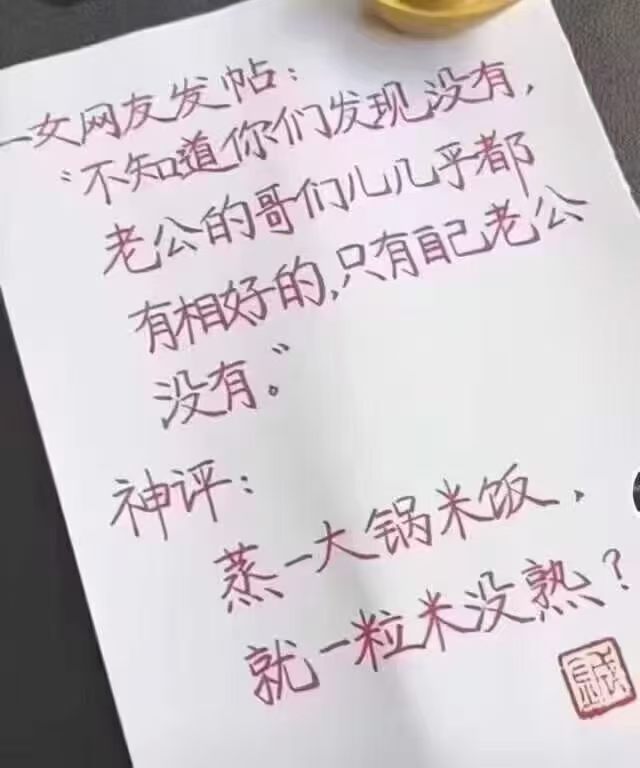 一女网友发帖：
“不知道你们发现没有，
老公的哥们儿几乎都
有相好的，只有自己老公
没有。”
神评：
蒸一大锅米饭，
就一粒米没熟？